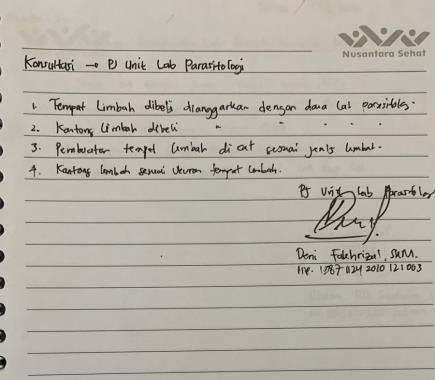 Nusantara Sehat
Konsultasi → PJ Unit Lab Parasitologi
1. Tempat Limbah dibeli dianggarkan dengan dana Lab parasitologi.
2. Kantong Limbah dibeli " " " "
3. Pembuatan tempat Limbah di cat sesuai jenis Limbah.
4. Kantong Limbah sesuai Ukuran tempat Limbah.
PJ Unit Lab Parasitologi
Doni Fakhrizal, SKM.
NIP. 1987 1124 2010 121 003